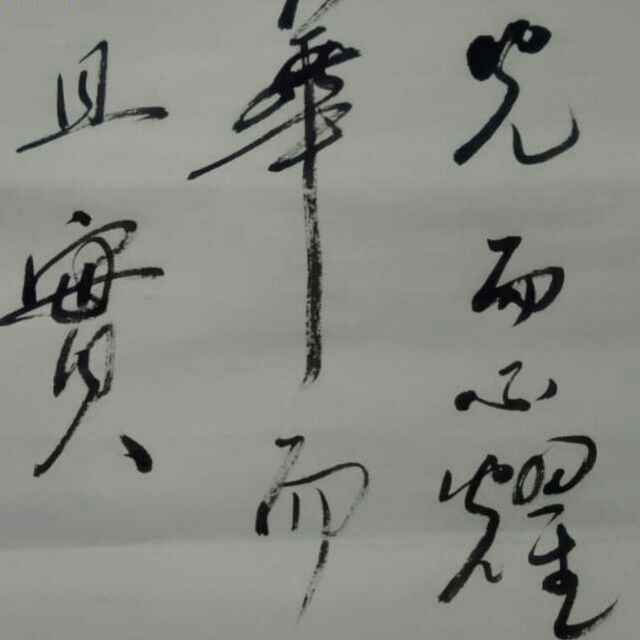 光而不耀
華而
且實